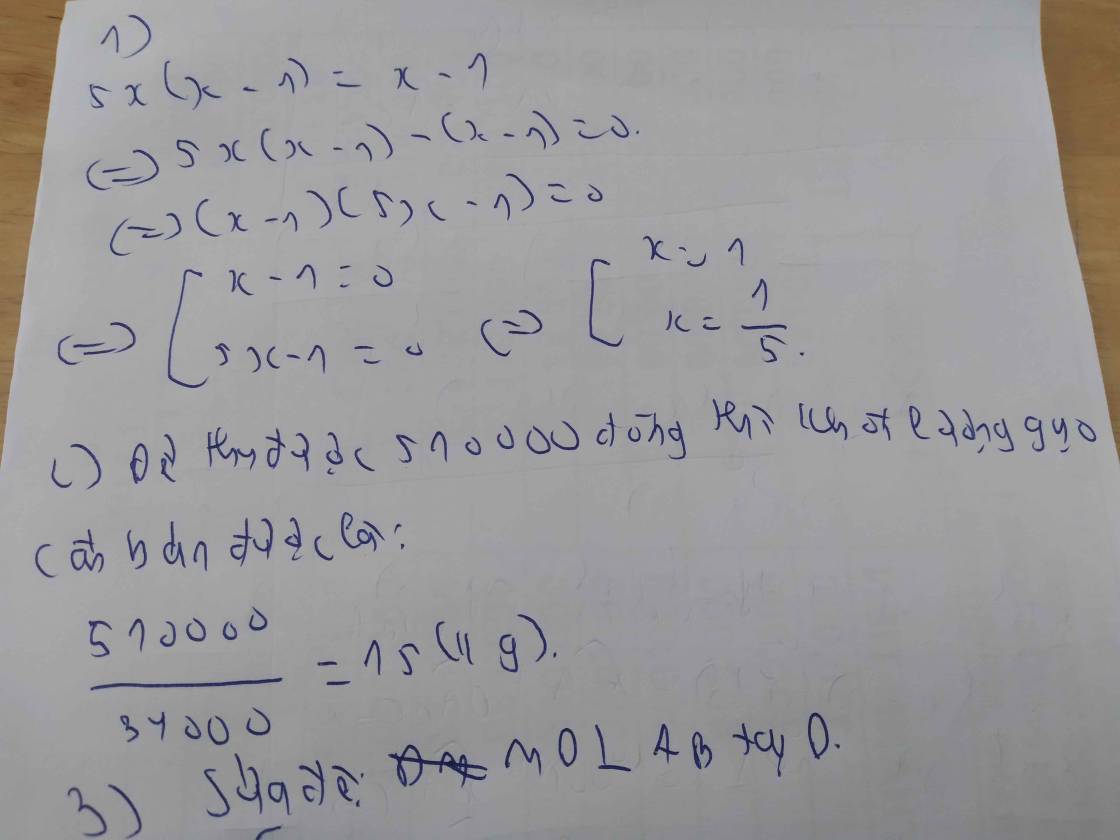 1)
5x(x-1) = x-1
(=) 5x(x-1)-(x-1)=0.
(=) (x-1)(5x-1)=0
(=) [ x-1=0 (=) [ x=1
5x-1=0 x=1/5.
c) Để thu được 510000 đồng thì khối lượng gạo
cần bán được là:
510000/34000 = 15 (kg).
3) Sửa đề: MOL AB tại O.